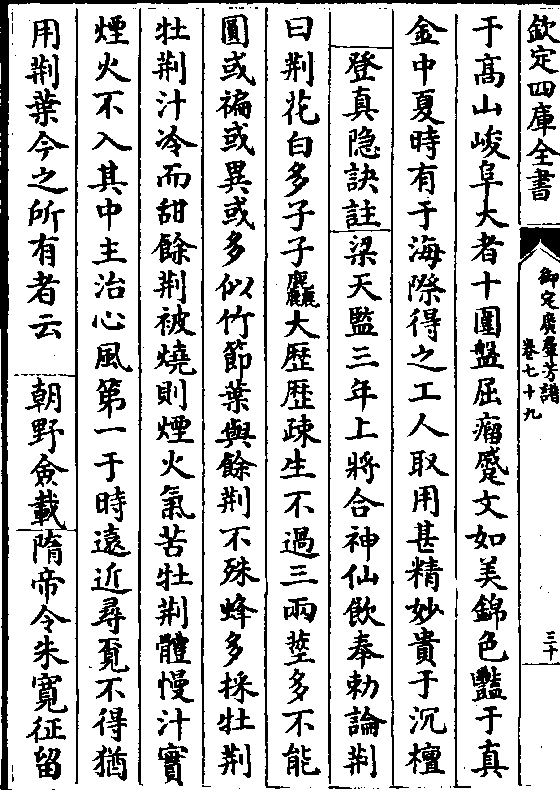 欽定四庫全書
御定廣羣芳譜
卷七十九
三十
于髙山峻阜大者十圍盤屈瘤蹙文如美錦色豔于真
金中夏時有于海際得之工人取用甚精妙貴于沉檀
登真隐訣註梁天監三年上將合神仙飲奉勅論荆
曰荆花白多子子麤大歴歴疎生不過三兩莖多不能
圓或褊或異或多似竹節葉與餘荆不殊蜂多採牡荆
牡荆汁冷而甜餘荆被燒則煙火氣苦牡荆體慢汁實
煙火不入其中主治心風第一于時遠近尋覔不得猶
用荆葉今之所有者云 朝野僉載隋帝令朱寛征留